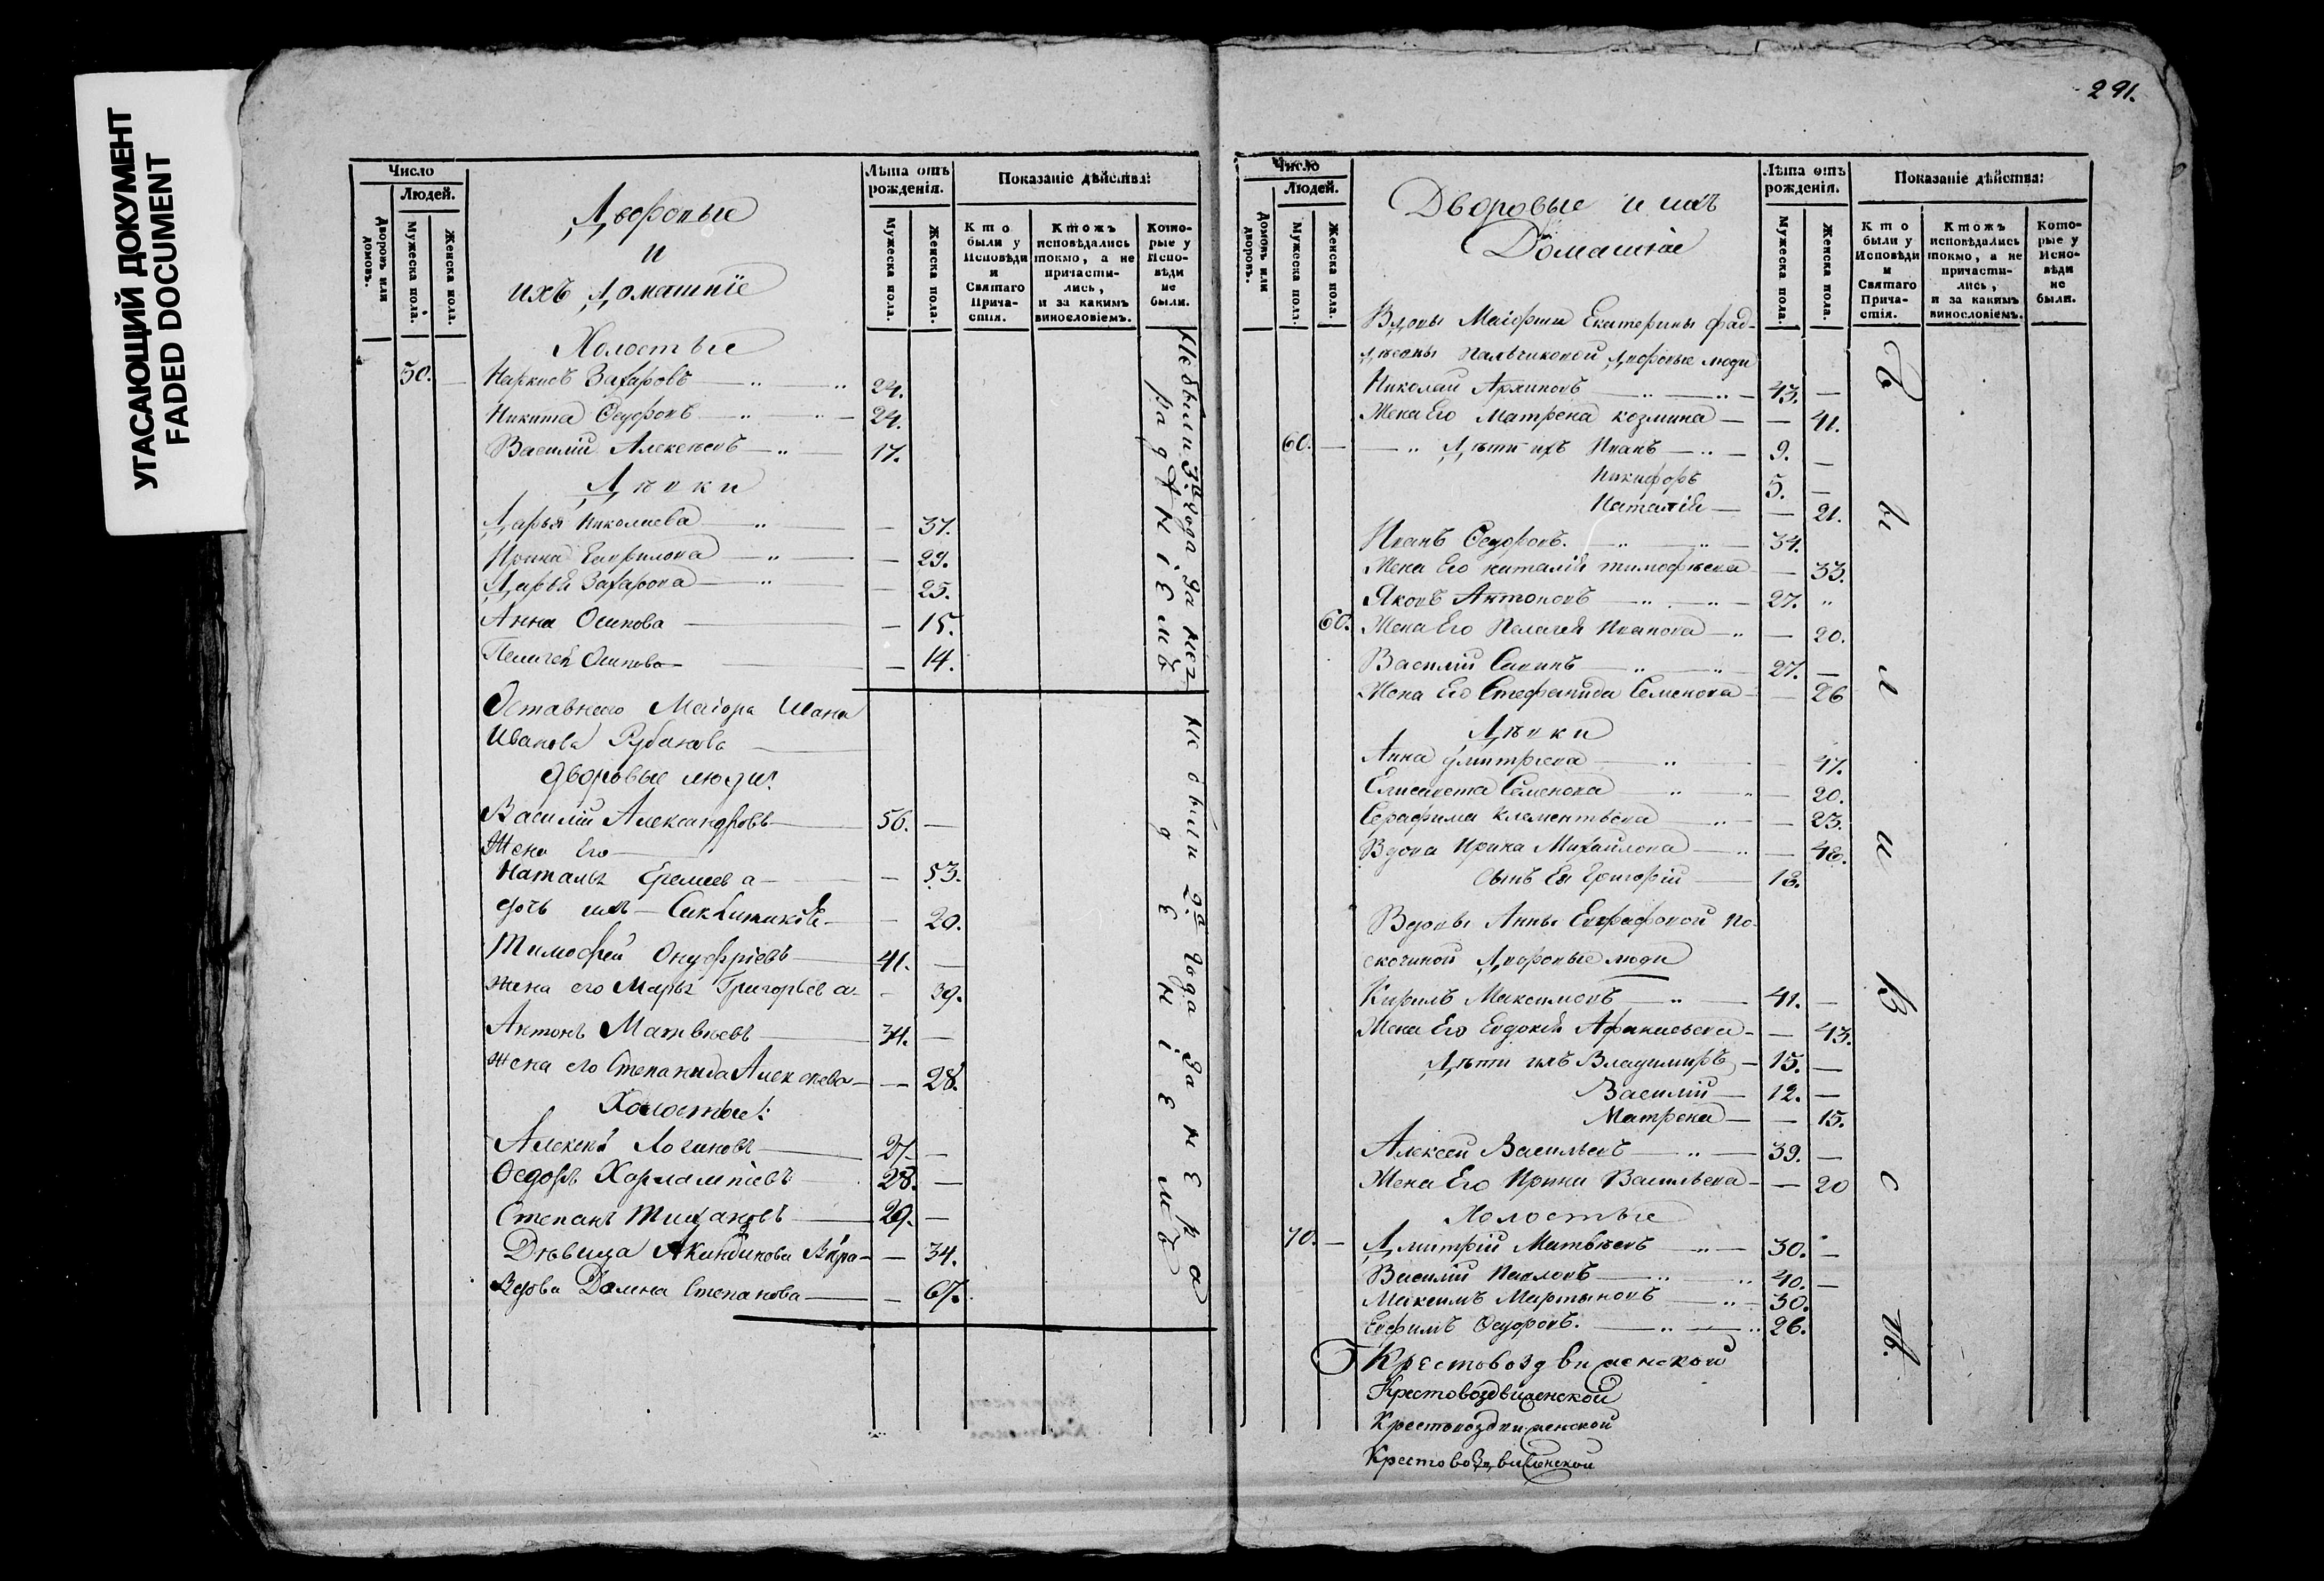 УГАСАЮЩИЙ ДОКУМЕНТ
FADED DOCUMENT
Число
Людей.
Дворовъ или домовъ.
Мужеска пола.
Женска пола.
Дворовые
и
ихъ Домашніе
Лѣта отъ рожденія.
Мужеска пола.
Женска пола.
Показаніе дѣйства:
Кто были у Исповѣди и Святаго Прича-стія.
Ктожъ исповѣдались токмо, а не причасти-лись, и за какимъ винословіемъ.
Кото-рые у Испо-вѣди не были.
Холостые
50. — Наркисъ Захаровъ — 24.
Никита Ѳедоровъ — 24.
Василій Алексѣевъ — 17.
Дѣвки
Дарья Николаева — 37.
Ирина Гаврилова — 29.
Дарья Захарова — 25.
Анна Осипова — 15.
Пелагея Осипова — 14.
Не были 3. года за нерадѣніемъ
Оставнаго Маіора Ивана
Иванова Рубанова
дворовые люди:
Василій Александровъ — 56. —
Жена Его
Наталья Еремеева — 53.
дочь ихъ — 20.
Тимофей Онуфріевъ — 41. —
жена его Марья Григорьева — 39.
Антонъ Матвѣевъ — 34. —
жена его Степанида Алексѣева — 28.
Холостые:
Алексѣй Логиновъ — 27. —
Ѳедоръ Харлампіевъ — 28. —
Степанъ — 29. —
Дѣвица Акиндинова — 34.
Вдова Домна Степанова — 67.
не были 2. года за нерадѣніемъ
291.
Число
Людей.
Домовъ или дворовъ.
Мужеска пола.
Женска пола.
Дворовые и ихъ
Домашніе
Лѣта отъ рожденія.
Мужеска пола.
Женска пола.
Показаніе дѣйства:
Кто были у Исповѣди и Святаго Прича-стія.
Ктожъ исповѣдались токмо, а не причасти-лись, и за какимъ винословіемъ.
Кото-рые у Испо-вѣди не были.
Вдовы Маіорши Екатерины Фад-
дѣевны Пальчиковой дворовые люди
Николай Архиповъ — 43. —
Жена Его Матрена Козмина — 41.
60. — Дѣти ихъ Иванъ — 9. —
Никифоръ 5. —
Наталія — 21.
Иванъ Ѳедоровъ. — 34.
Жена Его Наталія Тимофѣева — 33.
Яковъ Антоновъ — 27. „
60. Жена Его Пелагея Иванова — 20.
Василій Савинъ — 27. —
Жена Его Стефанида Семенова — 26
Дѣвки
Анна Дмитріева — 47.
Елисавета Семенова — 20.
Серафима Клементьева — 23.
Вдова Ирина Михайлова — 48.
сынъ Ея Григорій — 18.
Вдовы Анны Евграфовой По-
скочиной Дворовые люди
Кирилъ Максимовъ — 41. —
Жена Его Евдокія Афанасьева — 43.
Дѣти ихъ Владимиръ — 15. —
Василій — 12. —
Матрена — 15.
Алексей Васильевъ — 39. —
Жена Его Ирина Васильева — 20
Холостые
70. — Дмитрій Матвѣевъ — 30. —
Василій Павловъ — 40. —
Максимъ Мартыновъ — 30.
Евфимъ Ѳедоровъ. — 26.
Крестовоздвиженской
Крестовоздвиженской
Крестовоздвиженской
Крестовоздвиженской